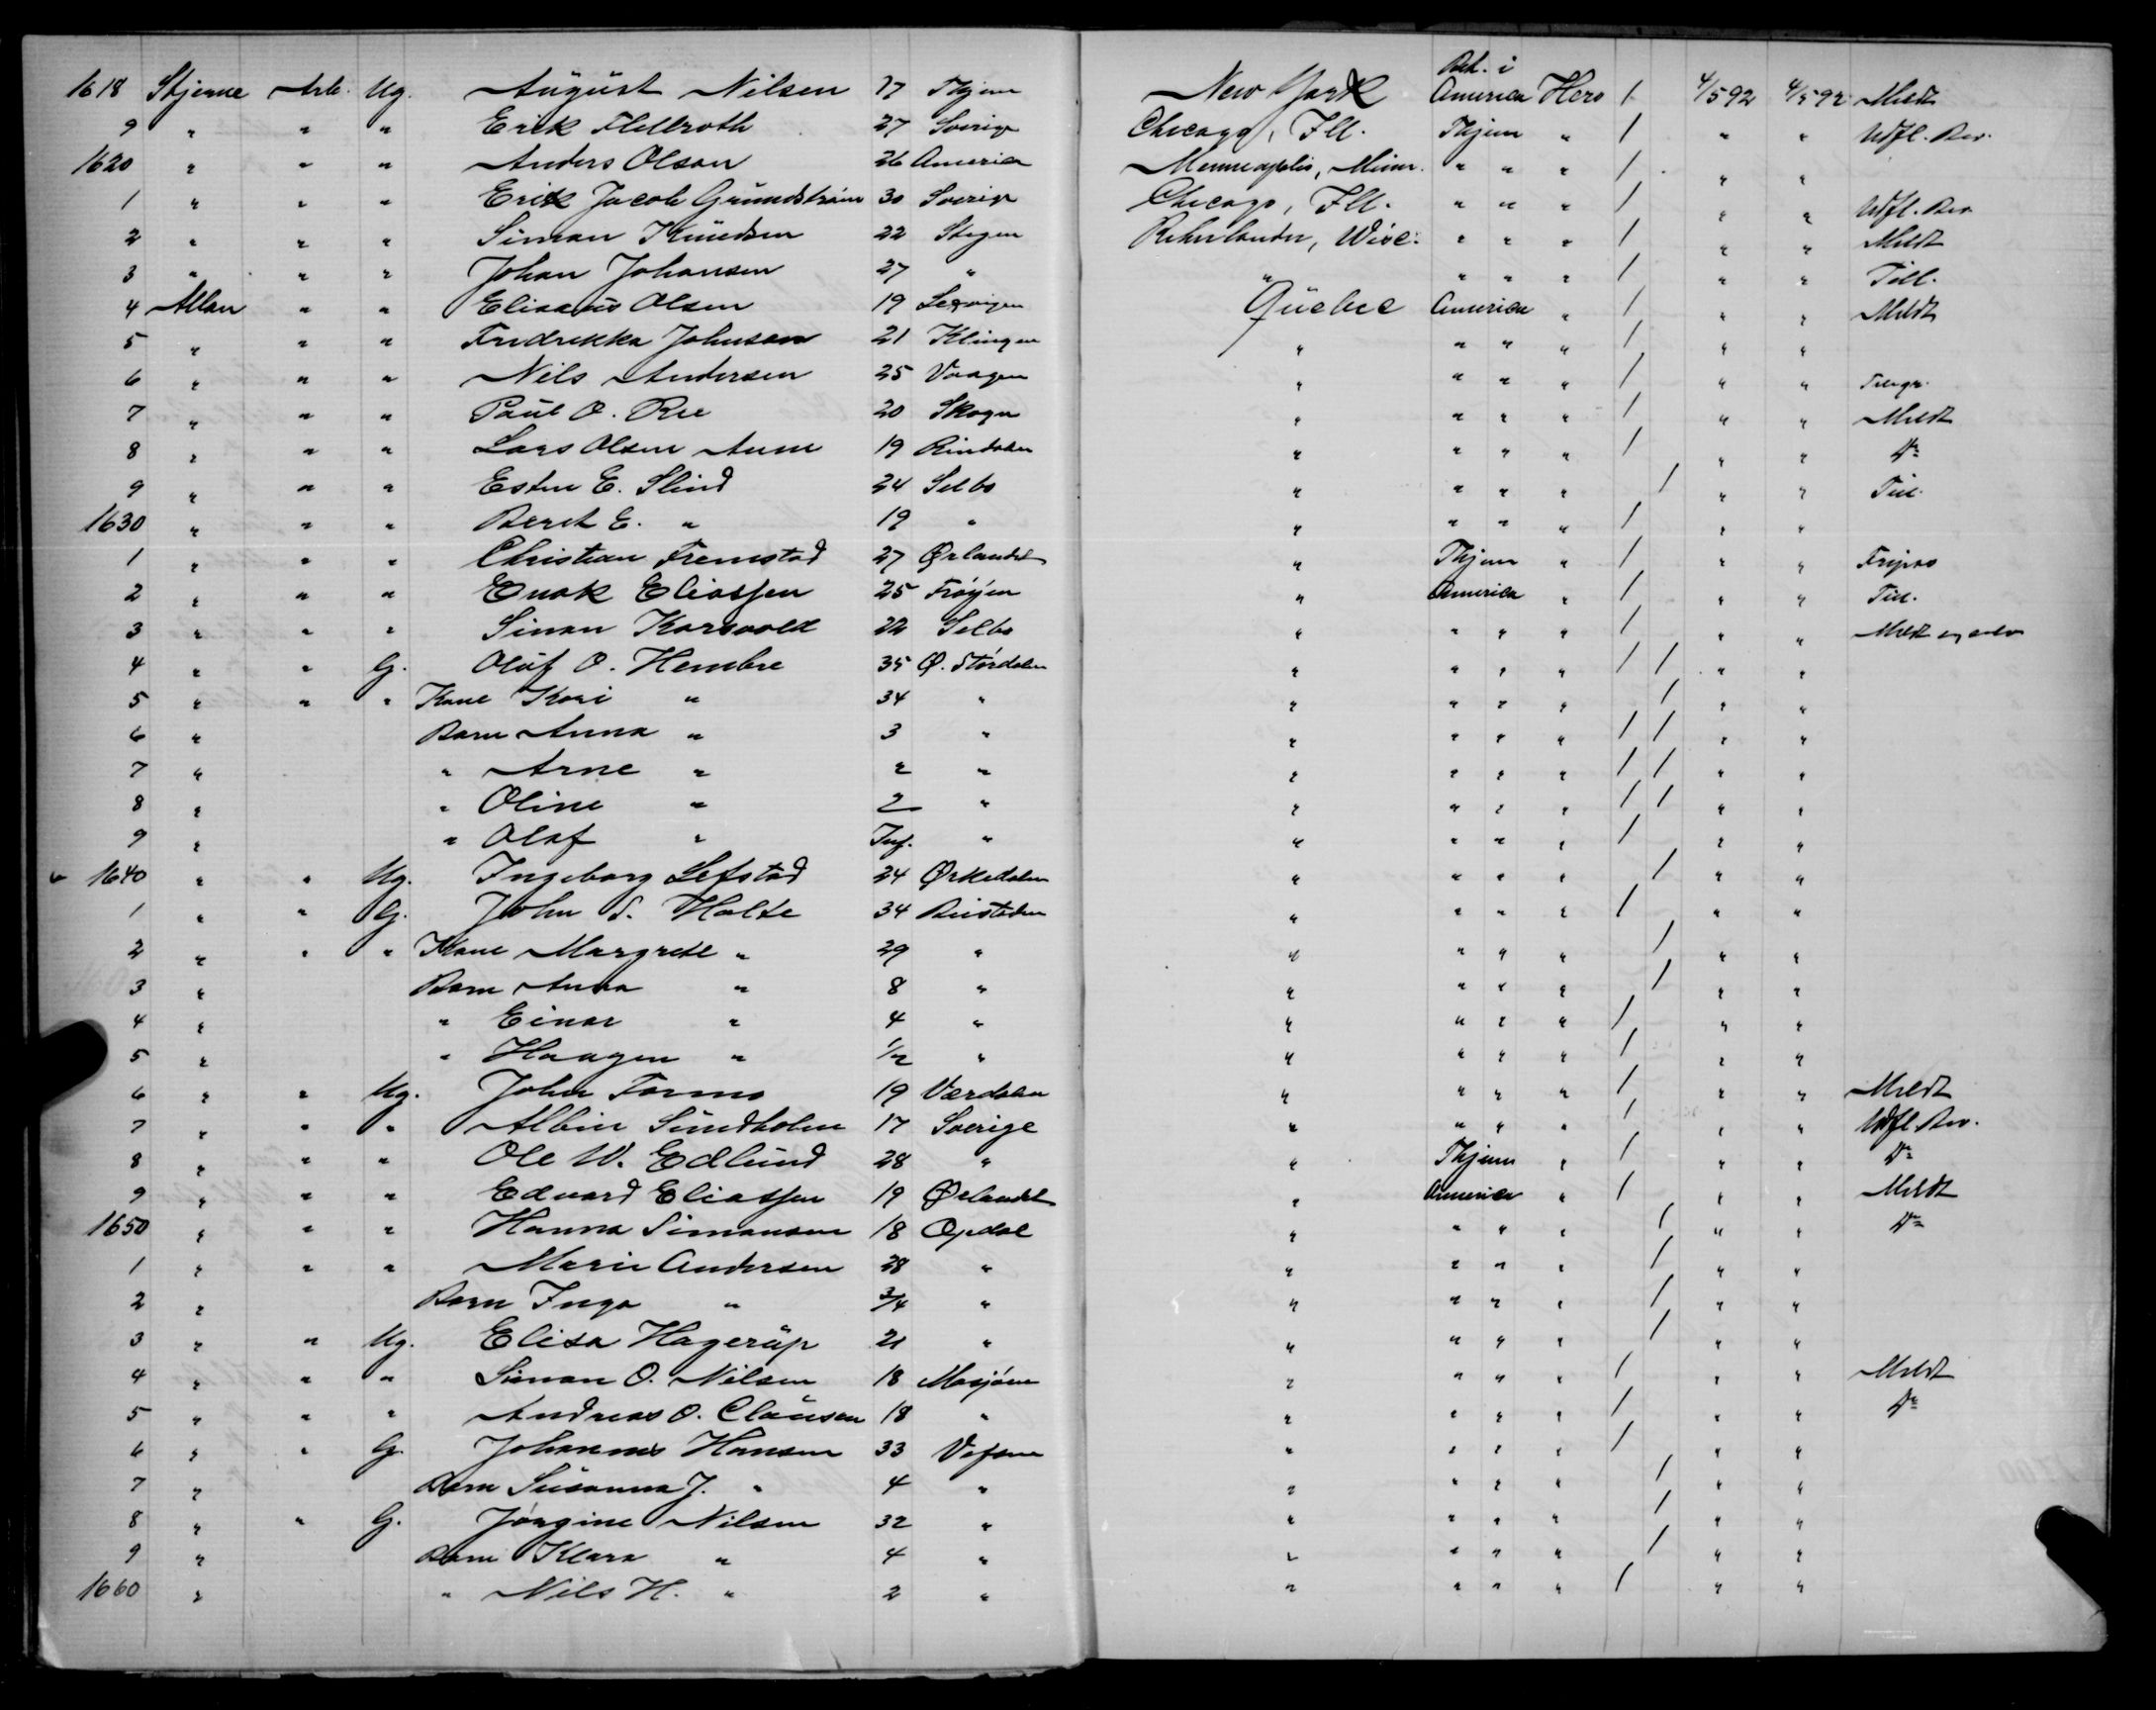 1618 Stjerne Arb. Ug. August Nilsen 17 Thjem New York Bet. i America Hero / 4/5 92 4/5 92 Meldt
9 " " " Erik Flellroth 27 Sverige Chicago, Ill. Thjem " / " " Udfl. Bev.
1620 " " " Anders Olson 26 America Menneaplis, Minn. " " " / " "
1 " " " Erik Jacob Grundström 30 Sverige Chicago, Ill. " " " / " " Udfl. Bev
2 " " " Simon Knudsen 22 Stegen Rihnlander, Wisc. " " " / " " Meldt
3 " " " Johan Johansen 27 " " " " " / " " Till.
4 Allan " " Elisæus Olsen 19 Quebec America " / " " Meldt
5 " " " Fredrikka Johnsen 21 Klingen " " " " / " "
6 " " " Nils Andersen 25 Vaagen " " " " / " "
7 " " " Paul O. Ree 20 Skogn " " " " / " " Meldt
8 " " " Lars Olsen Aune 19 Rindalen " " " " / " " Do
9 " " " Esten E. Slind 24 Selbo " " " " / " " Till.
1630 " " " Beret E. " 19 " " " " " / " "
1 " " " Christian Fremstad 27 Ørlandet " Thjem " / " " Fripas
2 " " " Enok Eliassen 25 Frøyen " America " / " " Till.
3 " " " Simon Karsvold 22 Selbo " " " " / " " Meldt
4 " " G. Oluf O. Hembre 35 Ø. Størdalen " " " " / / " "
5 " " " Kone Kari " 34 " " " " " / " "
6 " Barn Anna " 3 " " " " " / / " "
7 " " Arne " 2 " " " " " / / " "
8 " " Oline " 2 " " " " " / / " "
9 " " Olaf " Inf. " " " " " / " "
1640 " " Ug. Ingeborg Lefstad 24 Ørkedalen " " " " / " "
1 " " G. John S. Holte 34 Bustaden " " " " / " "
2 " " " Kone Margrete " 29 " " " " " / " "
3 " Barn Anna " 8 " " " " " / " "
4 " " Einar " 4 " " " " " / " "
5 " " Haagen " 1/2 " " " " " / " "
6 " " Ug. John Formo 19 Værdalen " " " " / " " Meldt
7 " " " Albin Sundholm 17 Sverige " " " " / " " Udfl. Bev.
8 " " " Ole W. Edlund 28 " " Thjem " / " " Do
9 " " " Edvard Eliassen 19 Ørlandet " America " / " " Meldt
1650 " " " Hanna Simonsen 18 Opdal " " " " / " " Do
1 " " " Marie Andersen 28 " " " " " / " "
2 " Barn Inga " 3/4 " " " " " / " "
3 " " Ug. Elisa Hagerup 21 " " " " " / " "
4 " " " Simon O. Nilsen 18 Mosjøen " " " " / " " Meldt
5 " " " Andreas O. Clausen 18 " " " " " / " " Do
6 " " G. Johannes Hansen 33 Vefsen " " " " / " "
7 " Barn Susanna J. " 4 " " " " " / " "
8 " " G. Jørgine Nilsen 32 " " " " " / " "
9 " Barn Klara " 4 " " " " " / " "
1660 " " Nils H. " 2 " " " " " / " "